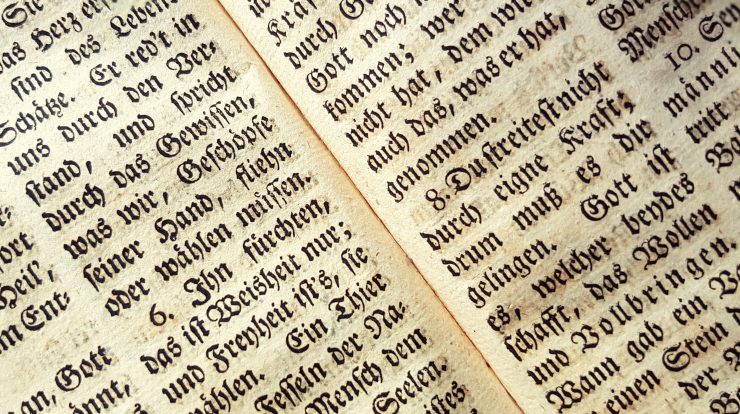 Sie
das Herz
sind des Leben
Schätze. Er red't in
uns durch den Ver-
stand, und spricht
durch das Gewissen,
was wir, Geschöpfe
seiner Hand, fliehn
oder wählen müssen.
6. Ihn fürchten,
das ist Weisheit nur;
und Freyheit ists, sie
wählen. Ein Thier
Fesseln der Na-
Mensch dem
Seelen.
Heil,
Ent-
an, Gott
durch G
Gott noch
kommen; wer
nicht hat, dem wir
auch das, was er hat,
genommen.
8. Du streitest nicht
durch eigne Kraft;
drum muß es dir
gelingen. Gott ist
es, welcher beydes
schafft, das Wollen
und Vollbringen.
Wann gab ein
einen Stein
der
Mensche
10.
männli
tritt